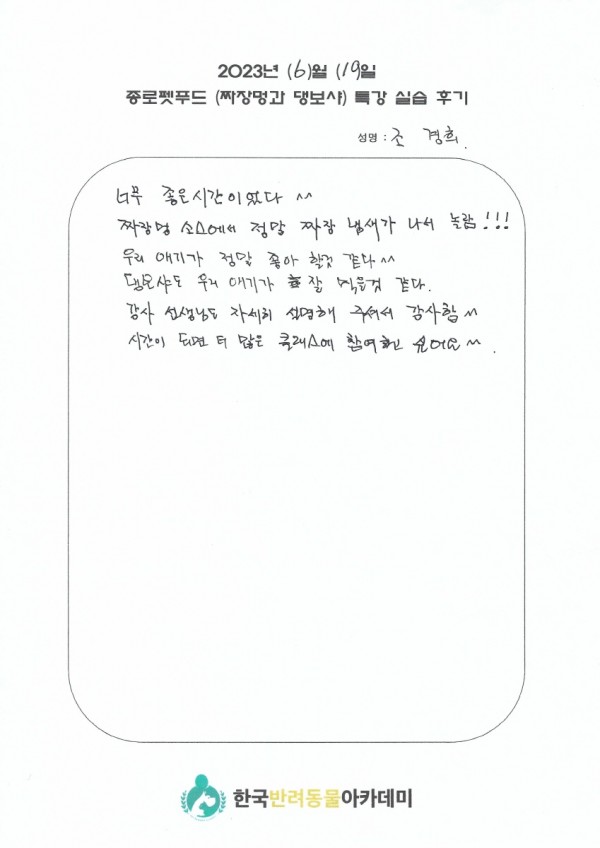 2023년 (6)월 (19)일
종로펫푸드 (짜장멍과 댕보샤) 특강 실습 후기
성명 : 조 경희.
너무 좋은시간이었다 ^^
짜장멍 소스에서 정말 짜장 냄새가 나서 놀람!!!
우리 애기가 정말 좋아 할것 같다^^
댕보샤도 우리 애기가 잘 먹을것 같다.
강사 선생님도 자세히 설명해 주셔서 감사함^^
시간이 되면 더 많은 클래스에 참여하고 싶어요^^.
한국반려동물아카데미